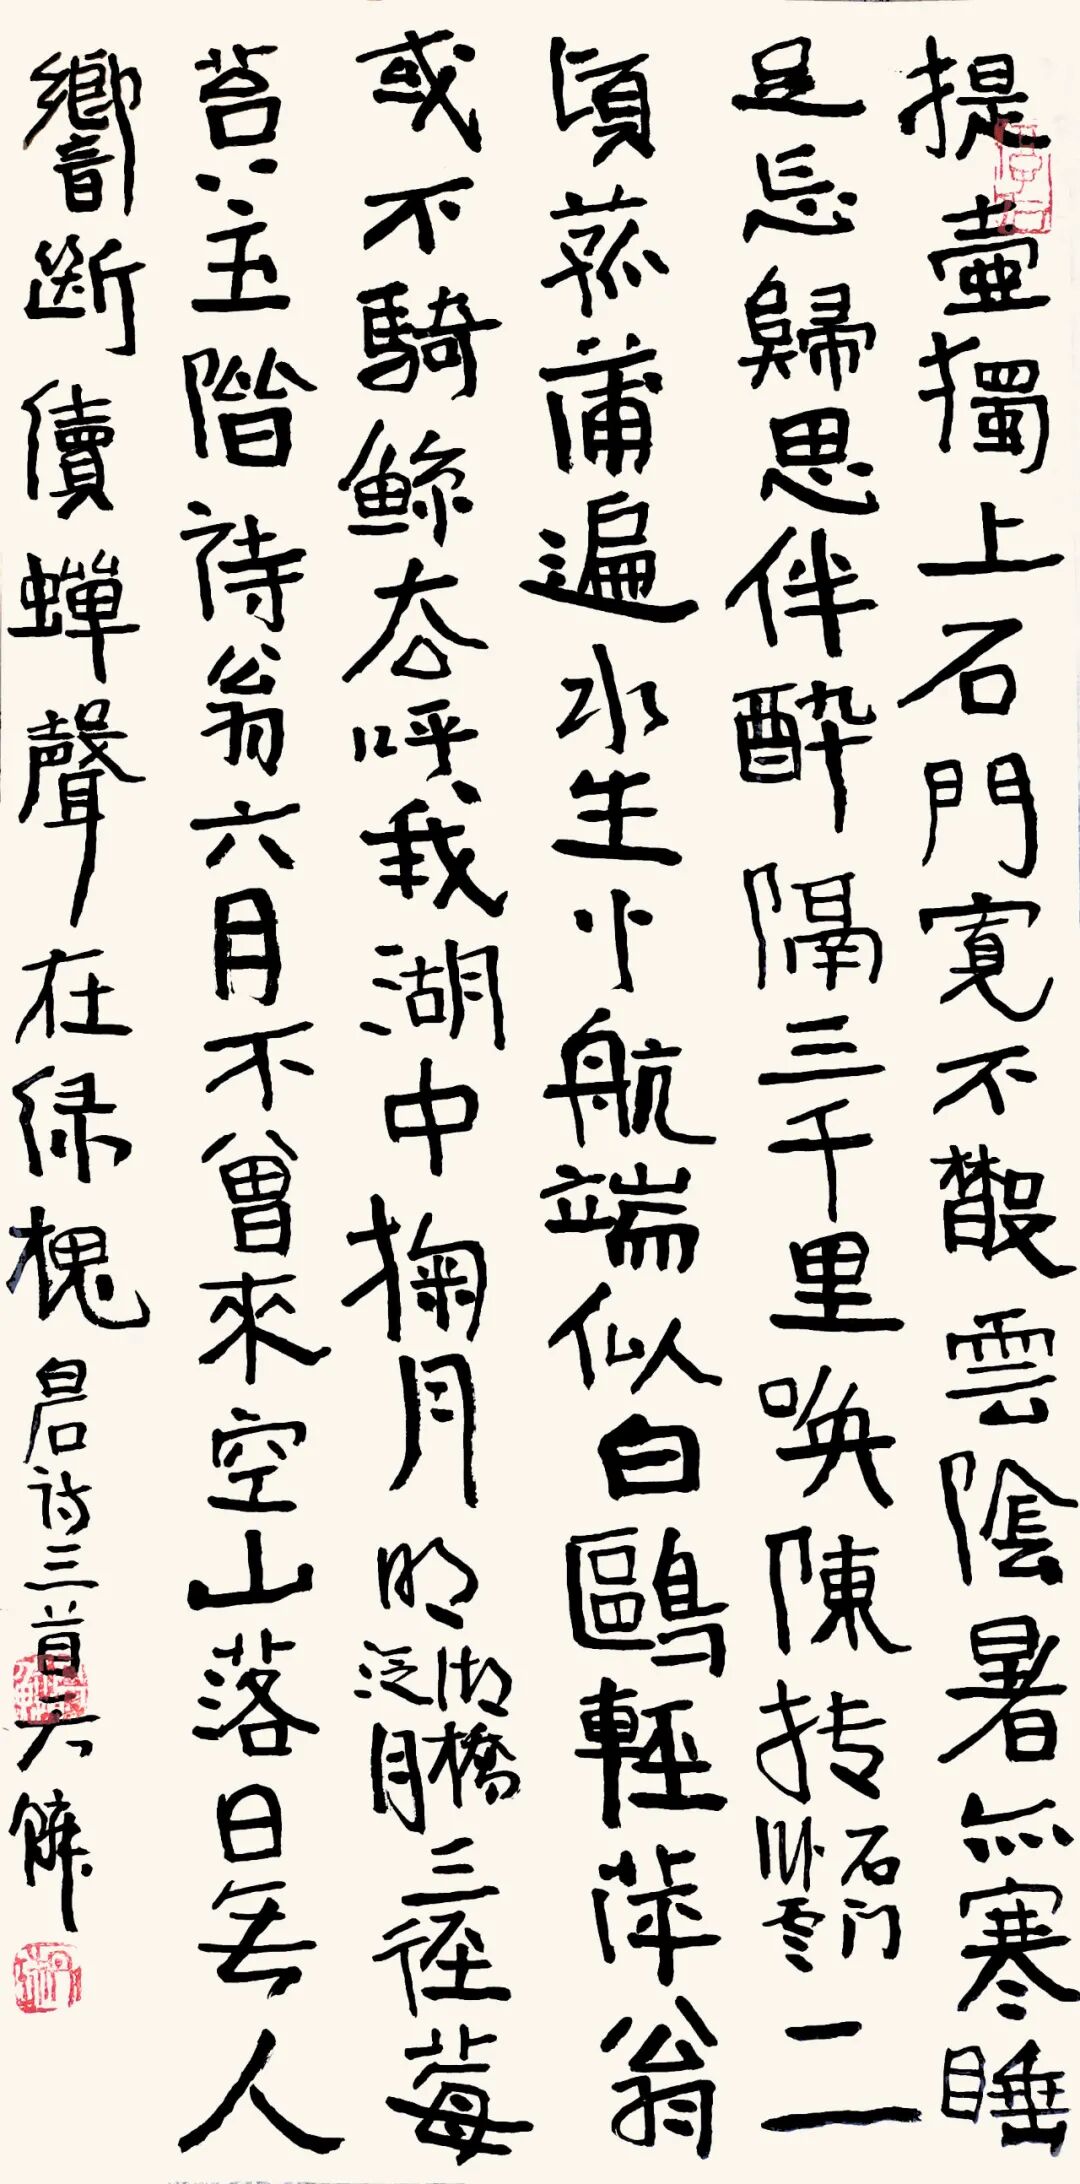 提壺獨上石門寬不散雲陰暑亦寒睡
足忘歸思伴醉隔三千里喚陳抟
石门
卧雲
二
頃菰蒲遍水生小航端似白鷗輕萍翁
或不騎鯨去呼我湖中掬月明
湖橋
泛月
三徑莓
苔主階待翁六月不曾來空山落日無人
響斷續蟬聲在綠槐
诗三首